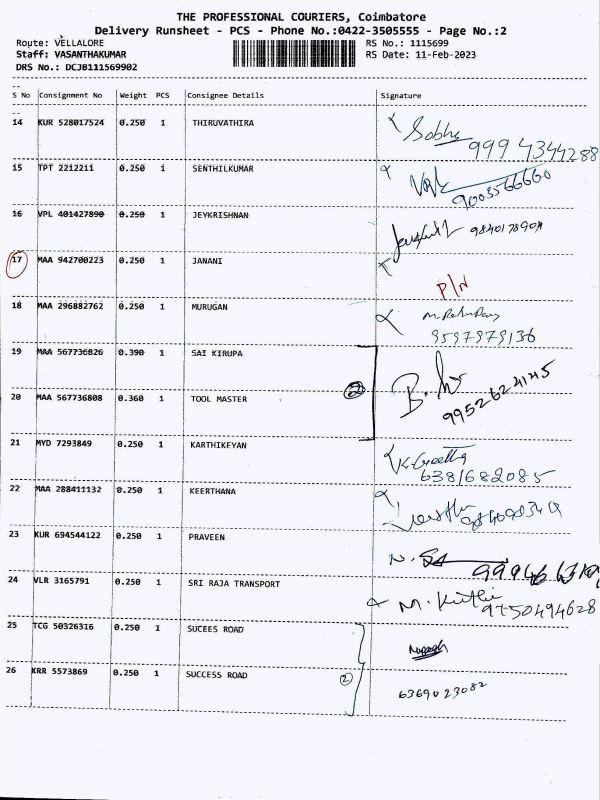 THE PROFESSIONAL COURIERS, Coimbatore
Delivery Runsheet - PCS - Phone No.:0422-3505555 - Page No.:2
Route: VELLALORE RS No.: 1115699
Staff: VASANTHAKUMAR RS Date: 11-Feb-2023
DRS No.: DCJB111569902
S No Consignment No Weight PCS Consignee Details Signature
14 KUR 528017524 0.250 1 THIRUVATHIRA Sobha
999 4344288
15 TPT 2212211 0.250 1 SENTHILKUMAR
9003566660
16 VPL 401427890 0.250 1 JEYKRISHNAN 9840178901
17 MAA 942700223 0.250 1 JANANI
P/N
18 MAA 296882762 0.250 1 MURUGAN
9597979136
19 MAA 567736826 0.390 1 SAI KIRUPA
20 MAA 567736808 0.360 1 TOOL MASTER 2
9952624145
21 MYD 7293849 0.250 1 KARTHIKEYAN K. Geetha
6381682085
22 MAA 288411132 0.250 1 KEERTHANA
23 KUR 694544122 0.250 1 PRAVEEN
24 VLR 3165791 0.250 1 SRI RAJA TRANSPORT
9750494628
25 TCG 50326316 0.250 1 SUCEES ROAD
26 KRR 5573869 0.250 1 SUCCESS ROAD 2
6369023082